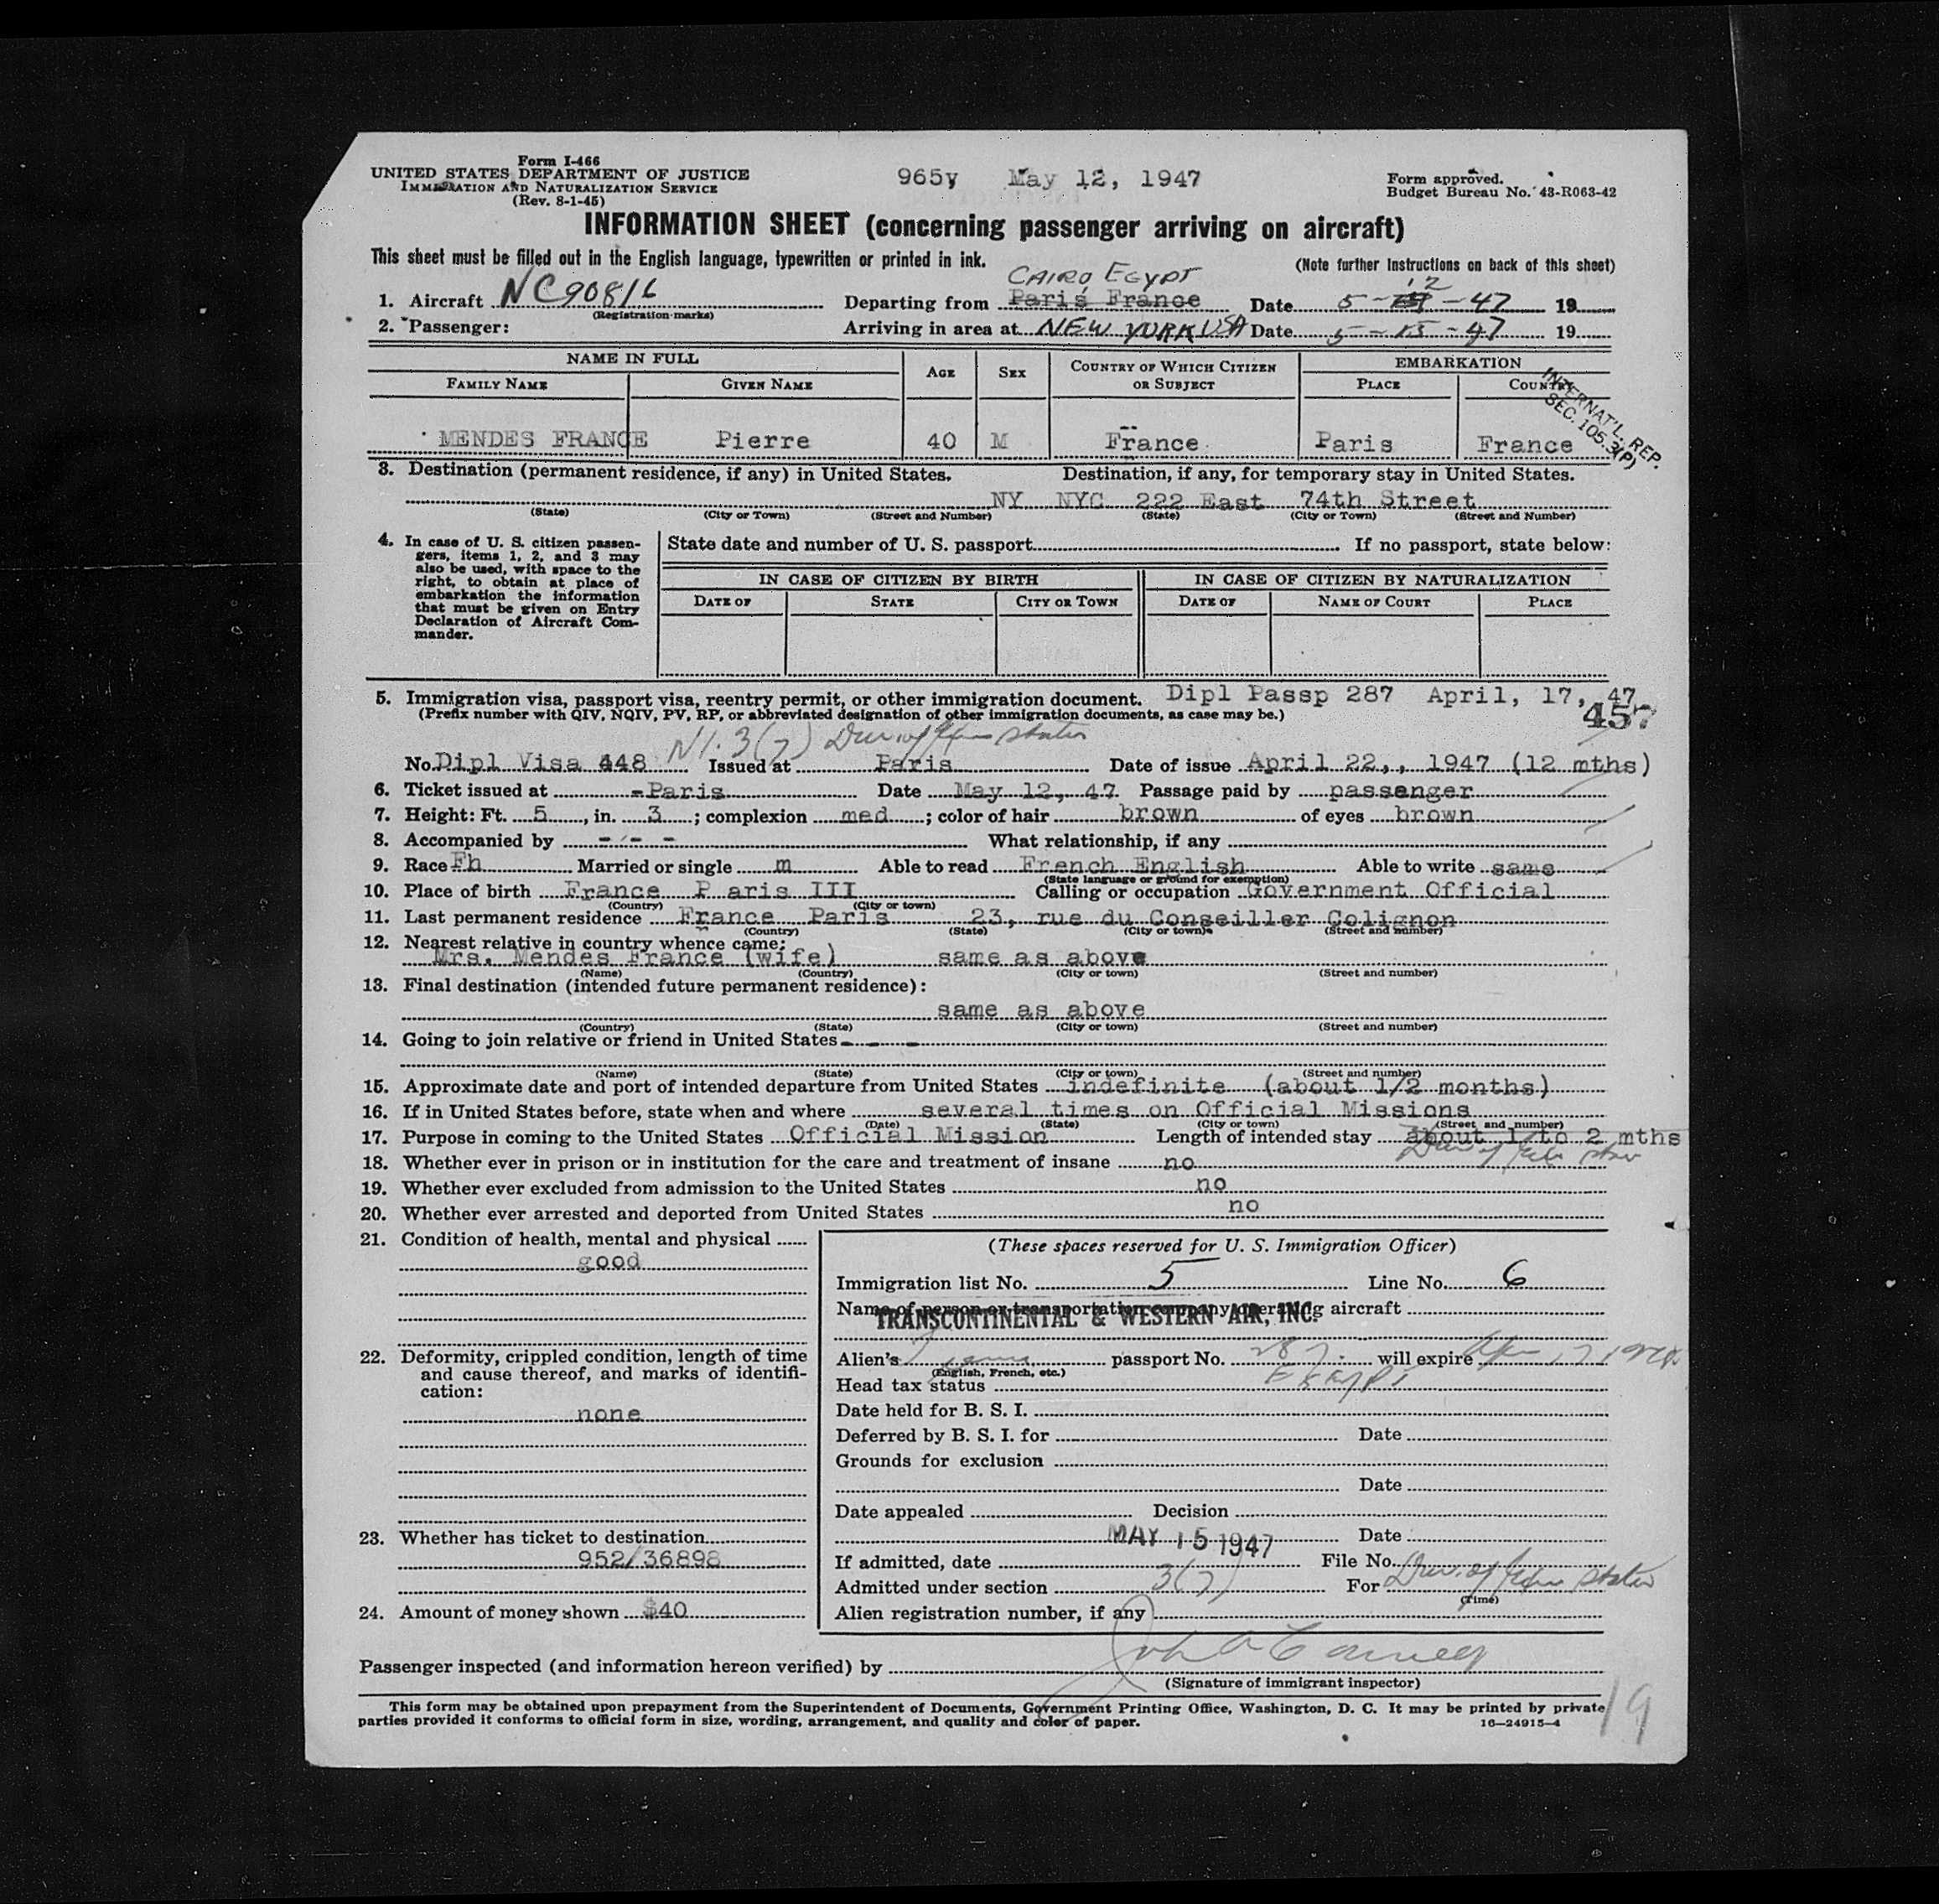 Form I-466
UNITED STATES DEPARTMENT OF JUSTICE
IMMIGRATION AND NATURALIZATION SERVICE
(Rev. 8-1-45)
965y May 12, 1947
Form approved.
Budget Bureau No. 43-R063-42
INFORMATION SHEET (concerning passenger arriving on aircraft)
This sheet must be filled out in the English language, typewritten or printed in ink.
(Note further instructions on back of this sheet)
CAIRO EGYPT
1. Aircraft NC90816 Departing from Paris France Date 5-12-47 19
(Registration marks)
2. Passenger: Arriving in area at NEW YORK USA Date 5-15-47 19
NAME IN FULL AGE SEX COUNTRY OF WHICH CITIZEN OR SUBJECT EMBARKATION
FAMILY NAME GIVEN NAME PLACE COUNTRY
INTERNAT'L. REP.
SEC. 105.3(P)
MENDES FRANCE Pierre 40 M France Paris France
3. Destination (permanent residence, if any) in United States. Destination, if any, for temporary stay in United States.
NY NYC 222 East 74th Street
(State) (City or Town) (Street and Number) (State) (City or Town) (Street and Number)
4. In case of U. S. citizen passengers, items 1, 2, and 3 may also be used, with space to the right, to obtain at place of embarkation the information that must be given on Entry Declaration of Aircraft Commander.
State date and number of U. S. passport If no passport, state below:
IN CASE OF CITIZEN BY BIRTH IN CASE OF CITIZEN BY NATURALIZATION
DATE OF STATE CITY OR TOWN DATE OF NAME OF COURT PLACE
5. Immigration visa, passport visa, reentry permit, or other immigration document. Dipl Passp 287 April, 17, 47
(Prefix number with QIV, NQIV, PV, RP, or abbreviated designation of other immigration documents, as case may be.)
457
3(7)
No. Dipl Visa 448 Issued at Paris Date of issue April 22,, 1947 (12 mths)
6. Ticket issued at -Paris Date May 12, 47 Passage paid by passenger
7. Height: Ft. 5, in. 3; complexion med; color of hair brown of eyes brown
8. Accompanied by - - - What relationship, if any
9. Race Fh Married or single m Able to read French English Able to write same
(State language or ground for exemption)
10. Place of birth France P aris III Calling or occupation Government Official
(Country) (City or town)
11. Last permanent residence France Paris 23, rue du Conseiller Colignon
(Country) (State) (City or town) (Street and number)
12. Nearest relative in country whence came:
Mrs. Mendes France (wife) same as above
(Name) (Country) (City or town) (Street and number)
13. Final destination (intended future permanent residence):
same as above
(Country) (State) (City or town) (Street and number)
14. Going to join relative or friend in United States - - -
(Name) (State) (City or town) (Street and number)
15. Approximate date and port of intended departure from United States indefinite (about 1/2 months)
16. If in United States before, state when and where several times on Official Missions
(Date) (State) (City or town) (Street and number)
17. Purpose in coming to the United States Official Mission Length of intended stay about 1 to 2 mths
18. Whether ever in prison or in institution for the care and treatment of insane no
19. Whether ever excluded from admission to the United States no
20. Whether ever arrested and deported from United States no
21. Condition of health, mental and physical
good
22. Deformity, crippled condition, length of time and cause thereof, and marks of identification:
none
23. Whether has ticket to destination
952/36898
24. Amount of money shown $40
(These spaces reserved for U. S. Immigration Officer)
Immigration list No. 5 Line No. 6
Name of person or transportation company operating aircraft
TRANSCONTINENTAL & WESTERN AIR, INC.
Alien's passport No. 287 will expire
(English, French, etc.)
Head tax status
Date held for B. S. I.
Deferred by B. S. I. for Date
Grounds for exclusion
Date
Date appealed Decision
MAY 15 1947 Date
If admitted, date File No.
Admitted under section 3(7) For
(Time)
Alien registration number, if any
Passenger inspected (and information hereon verified) by
(Signature of immigrant inspector)
This form may be obtained upon prepayment from the Superintendent of Documents, Government Printing Office, Washington, D. C. It may be printed by private
parties provided it conforms to official form in size, wording, arrangement, and quality and color of paper.
16—24915-4
19